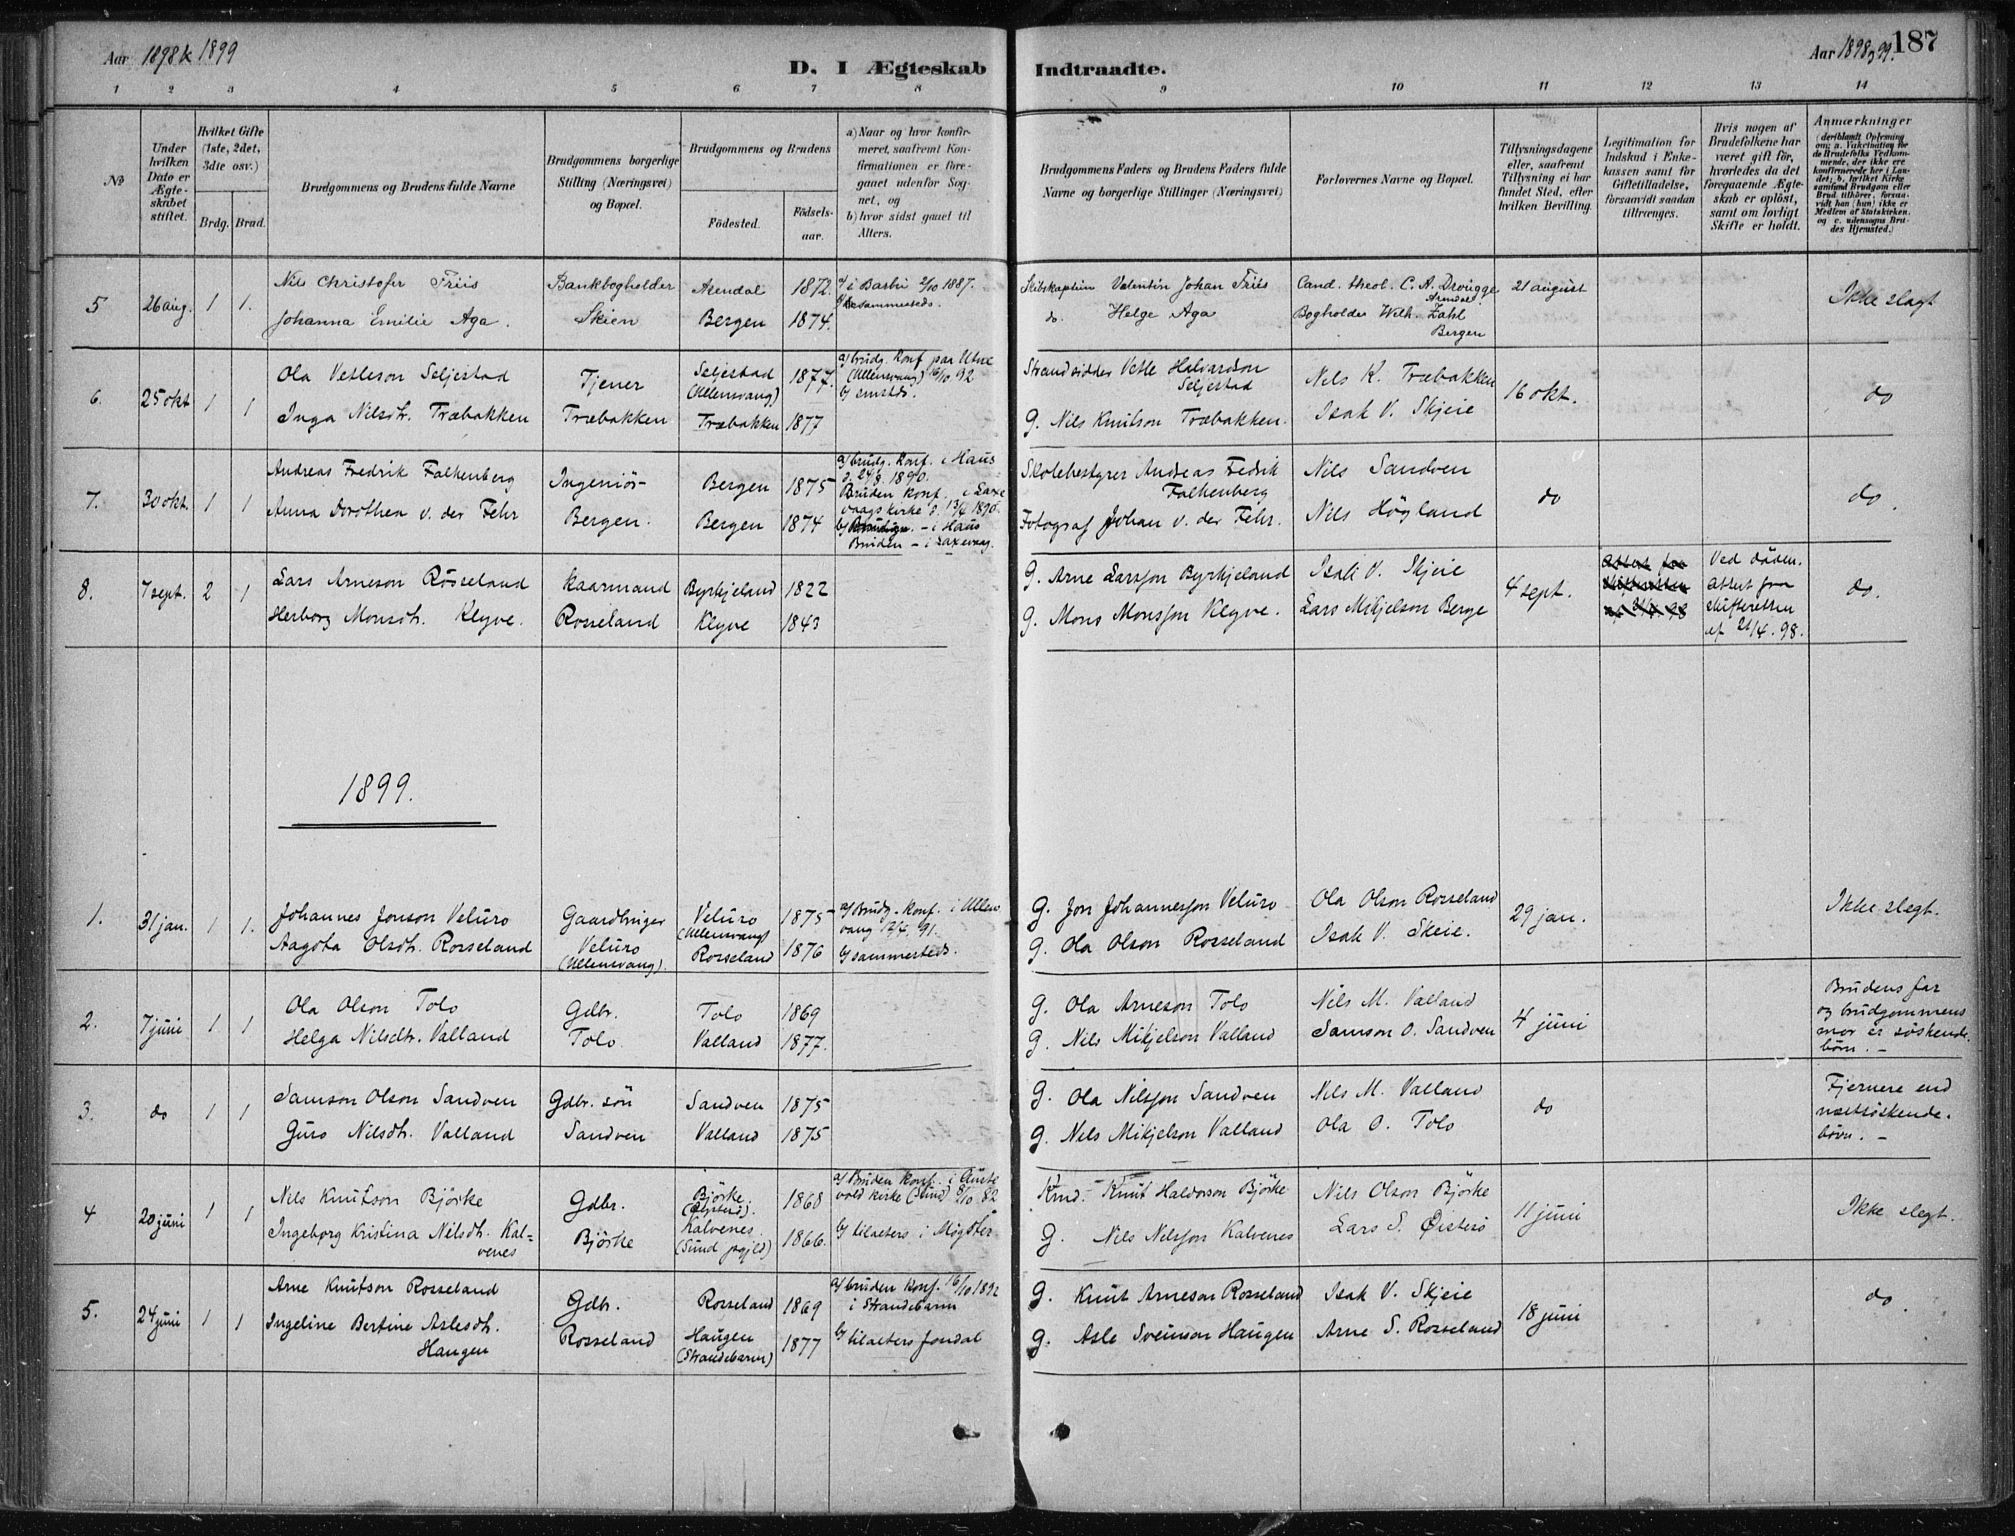 Aar 1898 & 1899
D. I Ægteskab Indtraadte.
Aar 1898 & 99.
187
1 2 3 4 5 6 7 8 9 10 11 12 13 14
No
Under hvilken Dato er Ægteskabet stiftet.
Hvilket Gifte (1ste, 2det, 3die osv.)
Brdg. Brud.
Brudgommens og Brudens fulde Navne
Brudgommens borgerlige Stilling (Næringsvei) og Bopæl.
Brudgommens og Brudens
Födested.
Födsels-aar.
a) Naar og hvor konfirmeret, saafremt Konfirmationen er foregaaet udenfor Sognet, og
b) hvor sidst gaaet til Alters.
Brudgommens Faders og Brudens Faders fulde Navne og borgerlige Stillinger (Næringsvei)
Forlovernes Navne og Bopæl.
Tillysningsdagene eller, saafremt Tillysning ei har fundet Sted, efter hvilken Bevilling.
Legitimation for Indskud i Enkekassen samt for Giftetilladelse, forsaavidt saadan tiltrænges.
Hvis nogen af Brudefolkene har været gift för, hvorledes da det foregaaende Ægteskab er oplöst, samt om lovligt Skifte er holdt.
Anmærkninger (deriblandt Oplysning om; a. Vakcination for de Brudefolks Vedkommende, der ikke ere konfirmerede her i Landet; b. hvilket Kirkesamfund Brudgom eller Brud tilhörer, forsaavidt han (hun) ikke er Medlem af Statskirken, og c. udensogns Brudes Hjemsted.)
5 26 aug. 1 1.
Nils Christofer Friis
Johanna Emilie Aga.
Bankbogholder
Skien
Arendal 1872.
Bergen 1874.
a/ i Barbu 2/10 1887.
b/ sammesteds.
Skibskaptein Valentin Johan Friis
do. Helge Aga
Cand. theol. C. A. Drougge
Arendal.
Bogholder Wilh. Zahl
Bergen
21 august
Ikke slegt
6. 25 okt 1 1
Ola Vetleson Seljestad
Inga Nilsdt. Træbakken
Tjener
Træbakken
Seljestad
(Ullensvang)
1877.
Træbakken 1877
a/ brudg. Konf paa Utne
(Ullensvang) 16/10 92
b/ smstds.
Strandsidder Vetle Halvardson
Seljestad
G. Nils Knutson Træbakken.
Nils K. Træbakken
Isak V. Skjeie
16 okt.
do
7. 30 okt. 1 1
Andreas Fredrik Falkenberg
Anna Dorothea v. der Fehr
Ingeniör
Bergen.
Bergen 1875
Bergen 1874
a/ brudg. Konf. i Haus
d. 24/8. 1890.
Bruden Konf. i Laxe
vaags kirke d. 13/4 1890.
b/ Brudgn. – i Haus
Bruden – i Laxevaag.
Skolebestyrer Andreas Fedrik
Falkenberg
Fotograf Johan v. der Fehr.
Nils Sandven
Nils Högland
do
do
8. 7 sept. 2 1
Lars Arneson Rösseland
Herborg Monsdt. Klyve.
Kaarmand
Rosseland
Byrkjeland 1822
Klyve 1843
G. Arne Larsson Byrkjeland
G. Mons Monsson Klyve.
Isak V. Skjeie
Lars Mikjelson Berge
4 sept.
Attest fra
skifteretten
af 21/4. 98
Ved döden.
Attest fra
skifteretten
af 21/4. 98.
do.
1899.
1. 31 jan. 1 1.
Johannes Jonson Veluro
Aagota Olsdt. Rosseland
Gaardbruger
Veluro
(Ullensvang).
Veluro
(Ullensvang)
1875
Rosseland 1876
a/ Brudg. Konf. i Ullens
vang 12/4. 91.
b/ sammesteds.
G. Jon Johannesson Veluro
G. Ola Olson Rosseland
Ola Olson Rosseland
Isak V. Skeie.
29 jan.
Ikke slegt.
2. 7 juni 1 1
Ola Olson Tolo
Helga Nilsdt. Valland
Gdbr.
Tolo.
Tolo 1869
Valland 1877.
G. Ola Arneson Tolo
G. Nils Mikjelson Valland
Nils M. Valland
Samson O. Sandven
4 juni
Brudens far
og brudgommens
mor er söskende-
börn. –
3. do 1 1
Samson Olson Sandven
Guro Nilsdt. Valland
Gdbr. sön
Sandven
Sandven 1875
Valland 1875
G. Ola Nilsson Sandven
G. Nils Mikjelson Valland
Nils M. Valland
Ola O. Tolo
do
Fjernere end
næstsöskende-
börn. –
4 20 juni 1 1
Nils Knutson Björke
Ingeborg Kristina Nilsdt. Kal=
venes
Gdbr.
Björke
Björke
1868
Kalvenes.
(Sund prgjld)
1866.
a/ Bruden Konf. i Auste
vold kirke (Sund) 8/10 82
b/ tilalters i Møgster
Kmd. – Knut Haldorson Björke
G. Nils Nilsson Kalvenes
Nils Olson Björke
Lars S. Øisterö
11 juni
Ikke slegt.
5. 24 juni 1 1
Arne Knutson Rosseland
Ingeline Bertine Aslesdt.
Haugen
Gdbr.
Rosseland
Rosseland 1869
Haugen
(Strandebarm)
1877
a/ bruden Konf. 16/10 1892
i Strandebarm
b/ tilalters Jondal
G. Knut Arneson Rosseland
G. Asle Sveinson Haugen
Isak V. Skjeie
Arne S. Rosseland
18 juni
do.